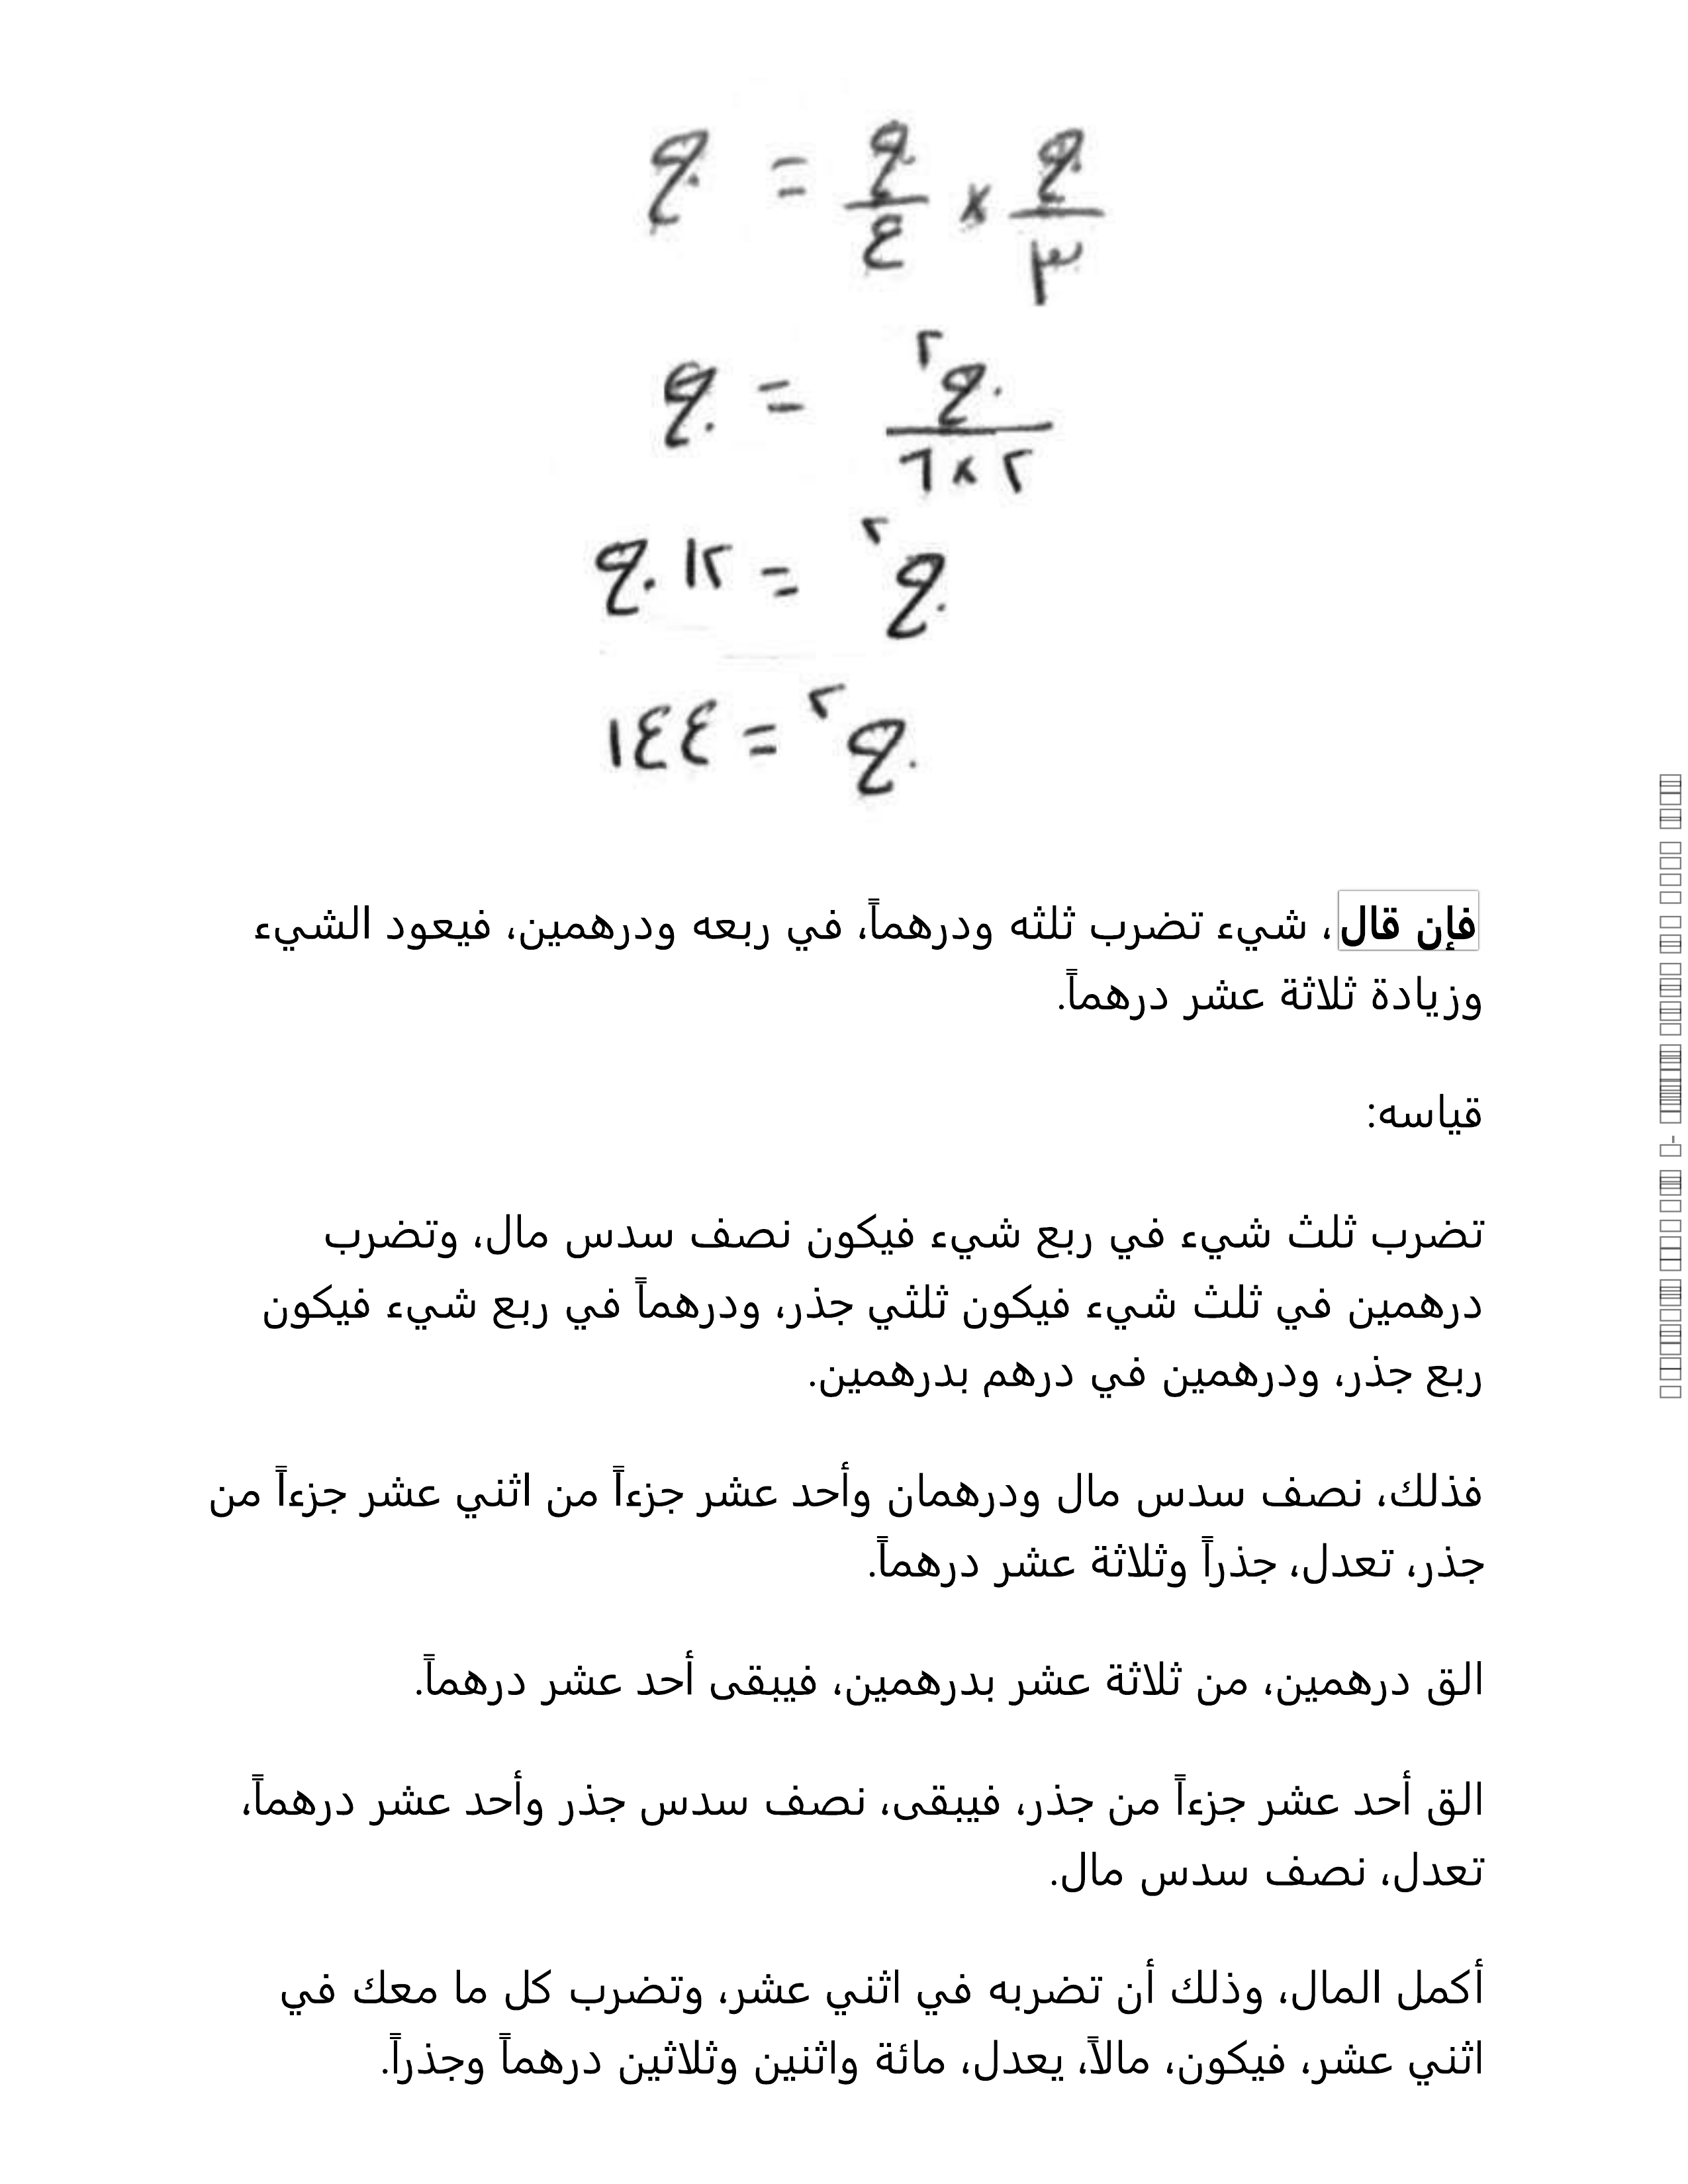 ج/٣ × ج/٤ = ج
ج٢ / ٢×٦ = ج
ج٢ = ١٢ ج
ج٢ = ١٤٤
فإن قال، شيء تضرب ثلثه ودرهماً، في ربعه ودرهمين، فيعود الشيء
وزيادة ثلاثة عشر درهماً.
قياسه:
تضرب ثلث شيء في ربع شيء فيكون نصف سدس مال، وتضرب
درهمين في ثلث شيء فيكون ثلثي جذر، ودرهماً في ربع شيء فيكون
ربع جذر، ودرهمين في درهم بدرهمين.
فذلك، نصف سدس مال ودرهمان وأحد عشر جزءاً من اثني عشر جزءاً من
جذر، تعدل، جذراً وثلاثة عشر درهماً.
الق درهمين، من ثلاثة عشر بدرهمين، فيبقى أحد عشر درهماً.
الق أحد عشر جزءاً من جذر، فيبقى، نصف سدس جذر وأحد عشر درهماً،
تعدل، نصف سدس مال.
أكمل المال، وذلك أن تضربه في اثني عشر، وتضرب كل ما معك في
اثني عشر، فيكون، مالاً، يعدل، مائة واثنين وثلاثين درهماً وجذراً.